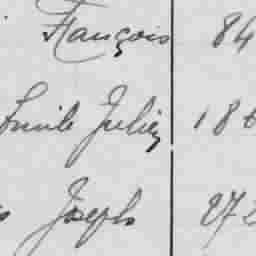 François 84
Emile Julien 186
s Joseph 272